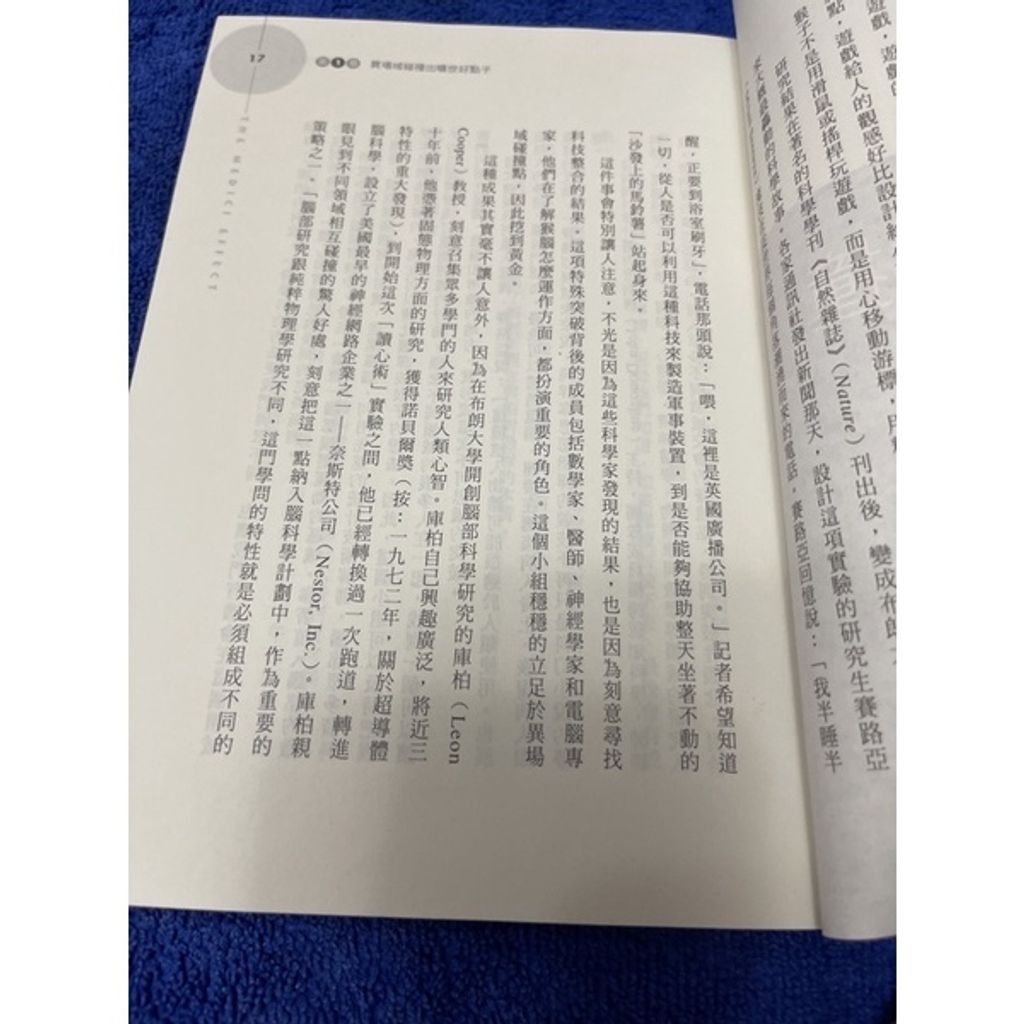 遊戲，遊戲的
點，遊戲給人的觀感好比設計
猴子不是用滑鼠或搖桿玩遊戲，而是用心移動游標，用
研究結果在著名的科學學刊《自然雜誌》（Nature）刊出後，變成布朗大
的科學故事。各家通訊社發出新聞那天，設計這項實驗的研究生賽路亞
而來的電話。賽路亞回憶說：「我半睡半
17
第1章 異場域碰撞出曠世好點子
THE MEDICI EFFECT
醒，正要到浴室刷牙」，電話那頭說：「喂，這裡是英國廣播公司。」記者希望知道
一切，從人是否可以利用這種科技來製造軍事裝置，到是否能夠協助整天坐著不動的
「沙發上的馬鈴薯」站起身來。
這件事會特別讓人注意，不光是因為這些科學家發現的結果，也是因為刻意尋找
科技整合的結果。這項特殊突破背後的成員包括數學家、醫師、神經學家和電腦專
家，他們在了解猴腦怎麼運作方面，都扮演重要的角色。這個小組穩穩的立足於異場
域碰撞點，因此挖到黃金。
這種成果其實毫不讓人意外，因為在布朗大學開創腦部科學研究的庫柏（Leon
Cooper）教授，刻意召集眾多學門的人來研究人類心智。庫柏自己興趣廣泛，將近三
十年前，他憑著固態物理方面的研究，獲得諾貝爾獎（按：一九七二年，關於超導體
特性的重大發現），到開始這次「讀心術」實驗之間，他已經轉換過一次跑道，轉進
腦科學，設立了美國最早的神經網路企業之一——奈斯特公司（Nestor, Inc.）。庫柏親
眼見到不同領域相互碰撞的驚人好處，刻意把這一點納入腦科學計劃中，作為重要的
策略之一。「腦部研究跟純粹物理學研究不同，這門學問的特性就是必須組成不同的